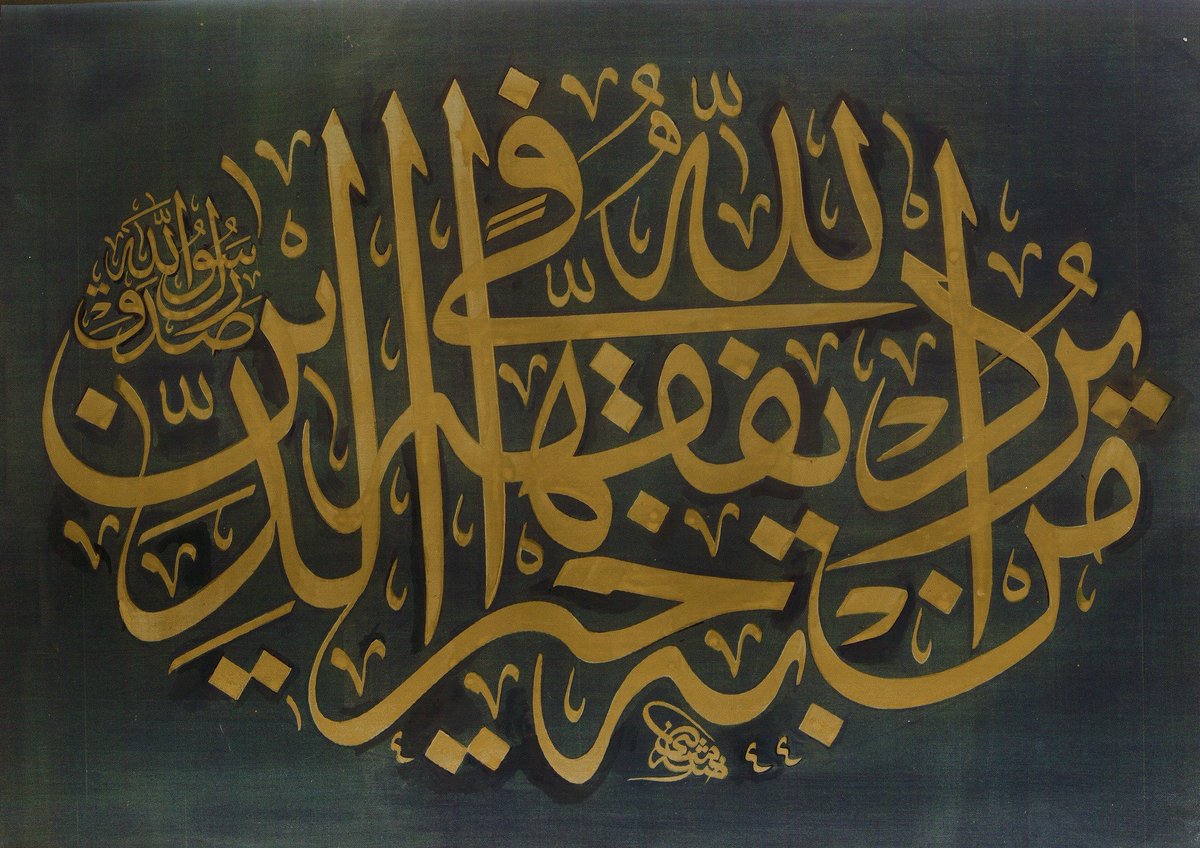 من يرد الله به خيرا يفقهه في الدين
صدق رسول الله